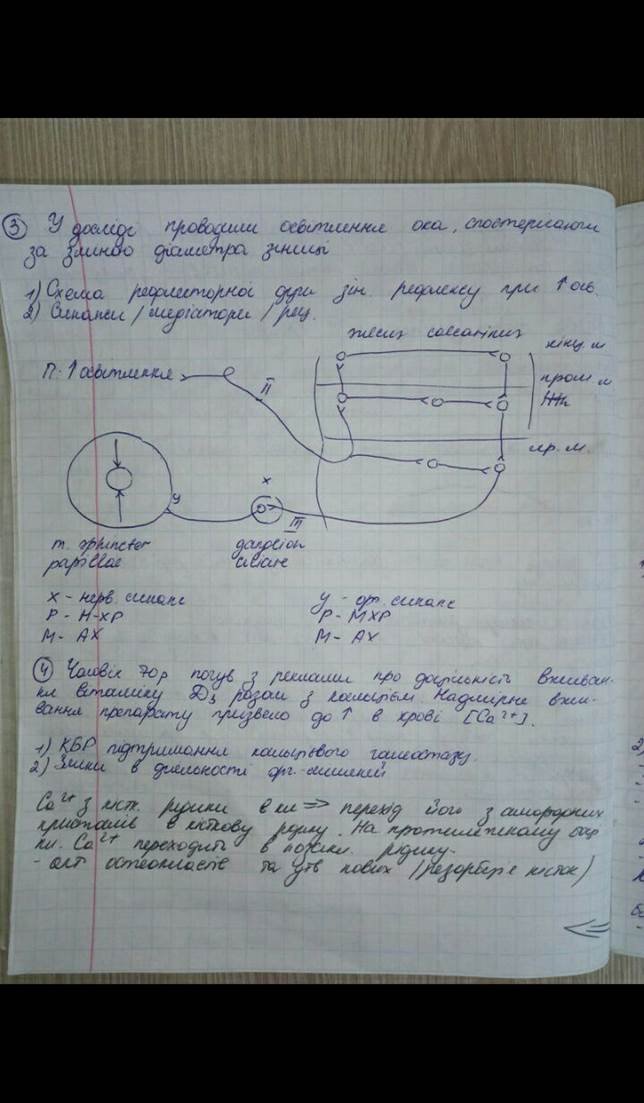 ③ У досліді проводили освітлення ока, спостерігаючи
за зміною діаметра зіниці
1) Схема рефлекторної дуги зін. рефлексу при ↑ осв.
2) Синапси / медіатори / рец.
кінц. м
П: ↑ освітлення
II
пром. м
пр. м.
x
y
III
m. sphincter
papillae
ganglion
ciliare
x - нерв. синапс
Р - Н-ХР
М - АХ
y - орг. синапс
Р - МХР
М - АХ
④ Чоловік 70р почув з реклами про доцільність вживан-
ня вітаміну D₃ разом з кальцієм. Надмірне вжи-
вання препарату призвело до ↑ в крові [Ca²⁺].
1) КБР підтримання кальцієвого гомеостазу.
2) Зміни в діяльності орг.-мішеней
Ca²⁺ з кістк. рідини в => перехід його з аморфних
кристалів в кісткову рідину. На протилежному
Ca²⁺ переходить в рідину.
- акт остеокластів та утв нових (резорбція кісток)